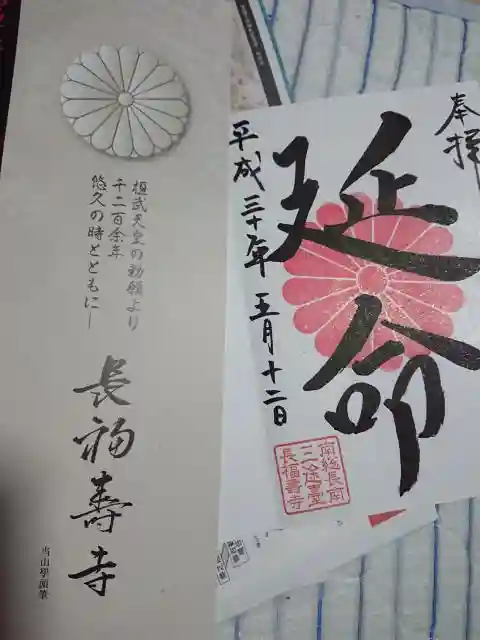 奉拝
延命
平成三十年五月十二日
長福壽寺
桓武天皇の勅願より
千二百余年
悠久の時とともに―
長福壽寺
当山学頭筆